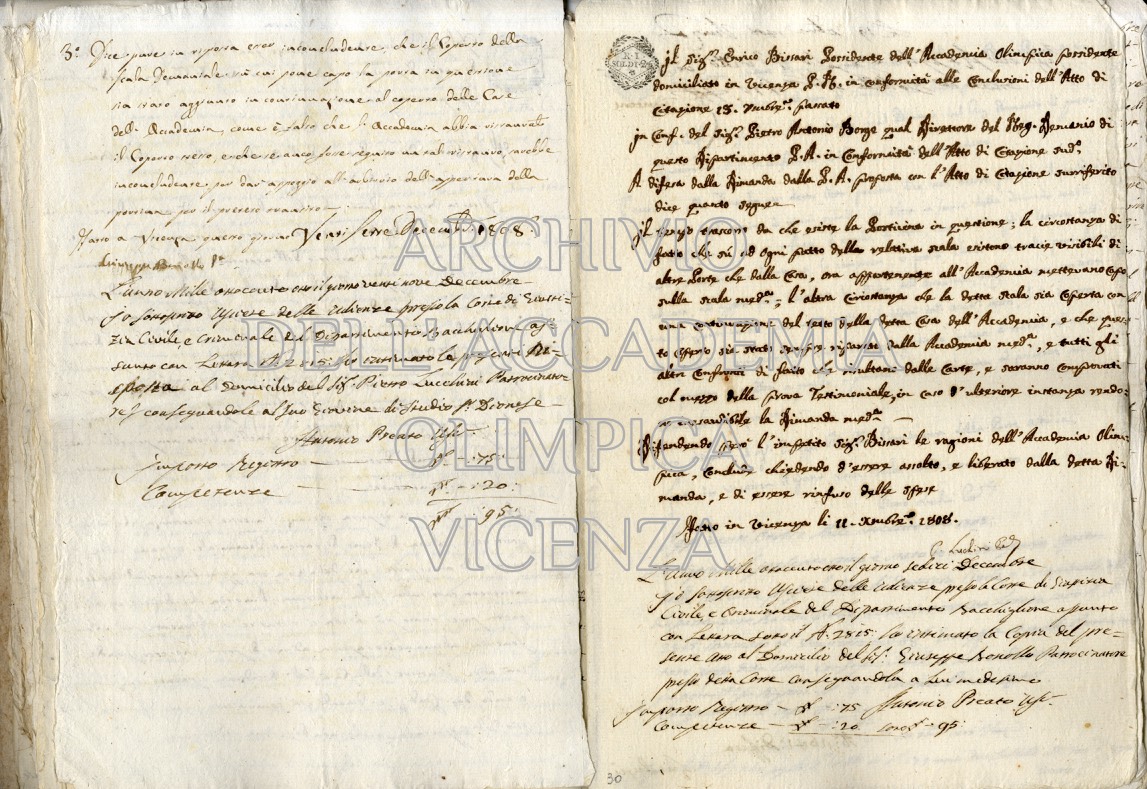 3.° Dice pure in risposta esser inconcludente, che il Coperto della
Scala Demaniale su cui pone capo la porta in questione
sia stato aggiunto in continuazione al coperto delle Case
dell'Accademia, come è falso che l'Accademia abbia ristaurato
il Coperto stesso, e che se anco fosse seguito un tal ristauro sarebbe
inconcludente per dar appoggio all'arbitrio dell'apertura della
portina per il preteso
Fatto a Vicenza questo giorno Venti sette Decembre 1808.
L'anno Mille ottocento otto il giorno venti nove Decembre
Io sottoscritto Usciere delle Udienze presso la Corte di Giusti-
zia Civile, e Criminale del Dipartimento Bacchiglione as-
sunto con Lettera N. 2815: ho intimato la presente Ri-
sposta al Domicilio del Sig. Pietro Lucchini Patrocinato-
re consegnandole al suo Giovine di Studio
Antonio Preato Usc.
Importo Registro — :75:
Competenze — :20:
:95:
R. I.
SOLDI 2
Il Sig.r Enrico Bissari Presidente dell'Accademia Olimpica possidente
domiciliato in Vicenza P. R. in conformità alle Conclusioni dell'Atto di
Citazione 15. passato
In Conf. del Sig.r Pietro Antonio Borge qual Direttore del Demanio di
questo Dipartimento P. A. in Conformità dell'Atto di Citazione sud.o
A difesa dalla Dimanda dalla P. A. proposta con l'Atto di Citazione surriferito
dice quanto segue
Il tempo trascorso da che esiste la Porticina in questione; la circostanza di
fatto che sù ad ogni patto della relativa scala esistono traccie visibili di
altre Porte che dalla Casa, ora appartenente all'Accademia mettevano Capo
sulla scala med.a; l'altra Circostanza che la detta Scala sia Coperta con
una continuazione del tetto della detta Casa dell'Accademia, e che ques-
to Coperto sia stato sempre riparato dalla Accademia med.a, e tutti gli
altri Confronti di fatto che risultano dalle Carte, e saranno Comprovati
col mezzo della prova Testimoniale, in caso d'ulteriore instanza rendo-
no la Dimanda med.a
Difendendo però l'impetito Sig.r Bissari le ragioni dell'Accademia Olim-
pica, Conclude chiedendo d'essere assolto, e liberato dalla detta Di-
manda, e di essere rinfuso delle spese
Fatto in Vicenza li 11. Xmbre 1808.
P. Lucchini
L'anno Mille ottocento otto il giorno sedici Decembre
Io sottoscritto Usciere delle Udienze presso la Corte di Giustizia
Civile e Criminale del Dipartimento Bacchiglione assunto
con Lettera sotto il N. 2815: ho intimato la Copia del pre-
sente atto al Domicilio del Sig. Giuseppe Bonollo Patrocinatore
presso detta Corte consegnandola a Lui medesimo
Importo Registro — :75 Antonio Preato Usc.
Competenze — :20 :95:
30
ARCHIVIO
DELL'ACCADEMIA
OLIMPICA
VICENZA